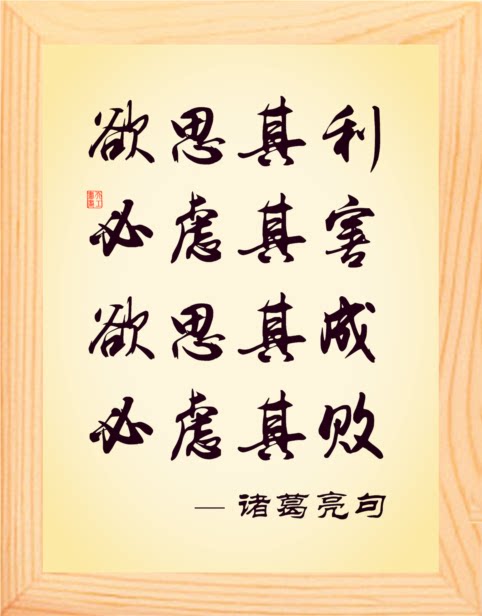 欲思其利
必虑其害
欲思其成
必虑其败
— 诸葛亮句